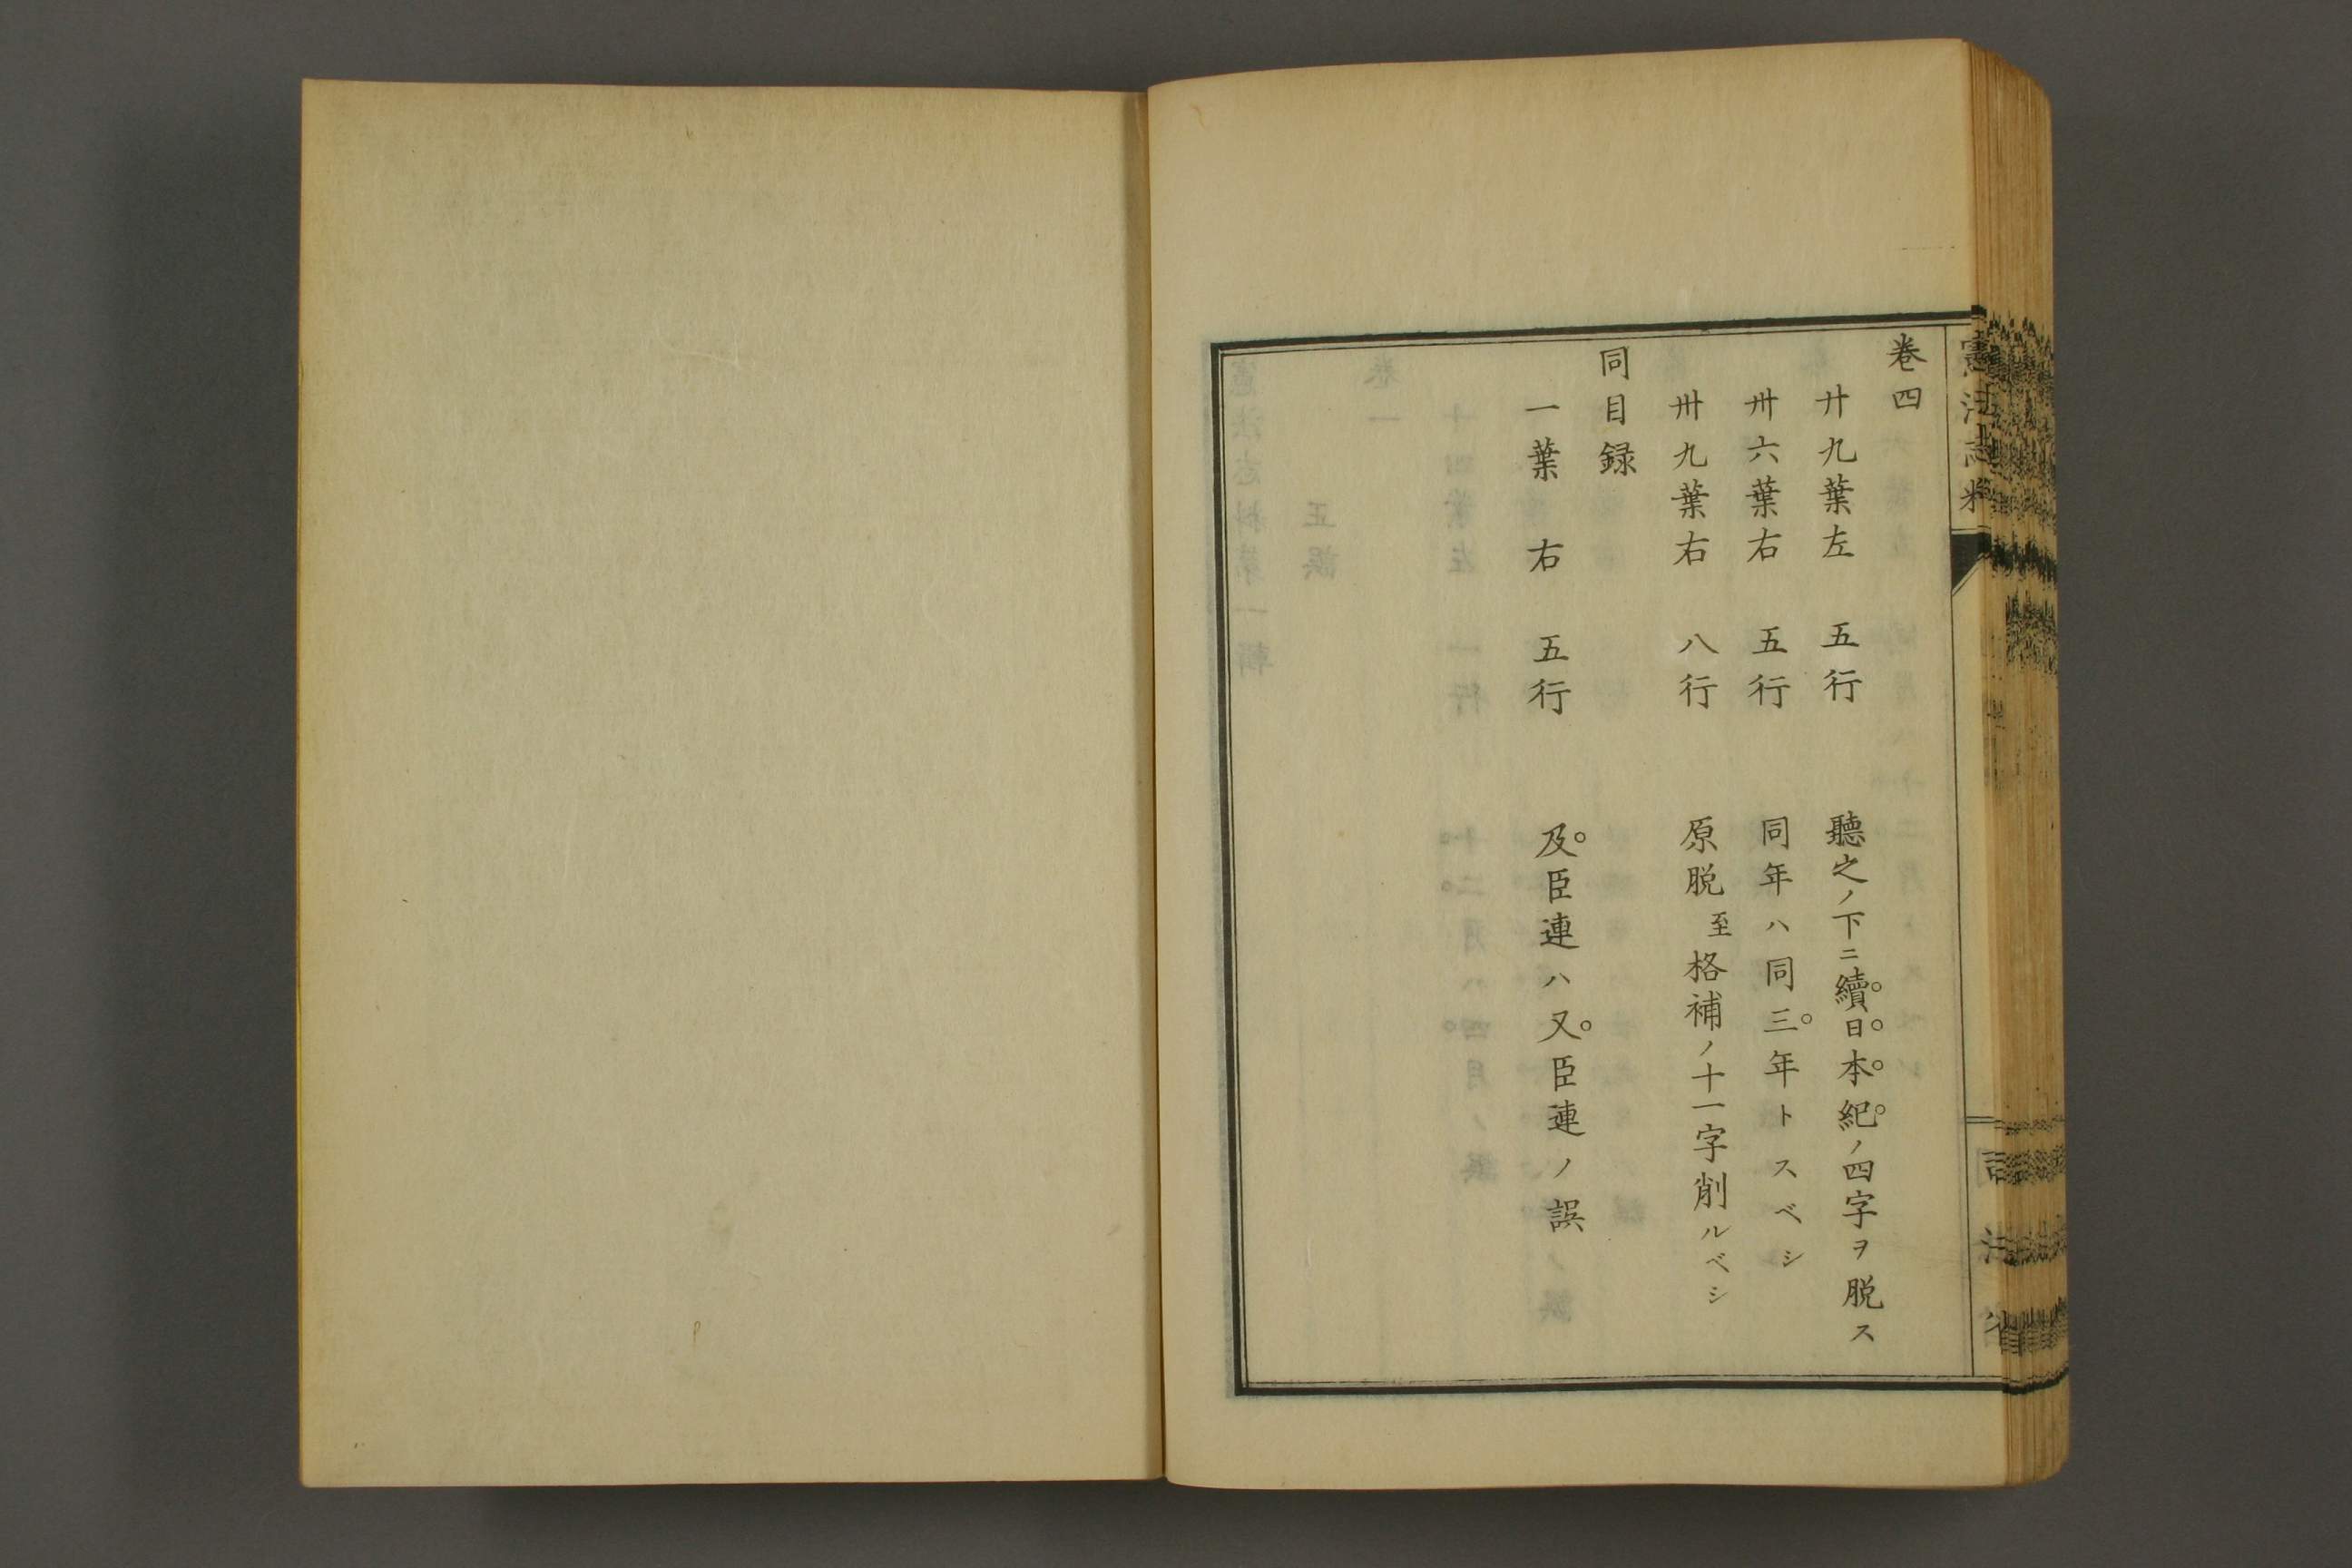 巻四
廿九葉左 五行 聽之ノ下ニ續日本紀ノ四字ヲ脱ス
卅六葉右 五行 同年ハ同三年トスベシ
卅九葉右 八行 原脱至格補ノ十一字削ルベシ
同目録
一葉右 五行 及臣連ハ又臣連ノ誤